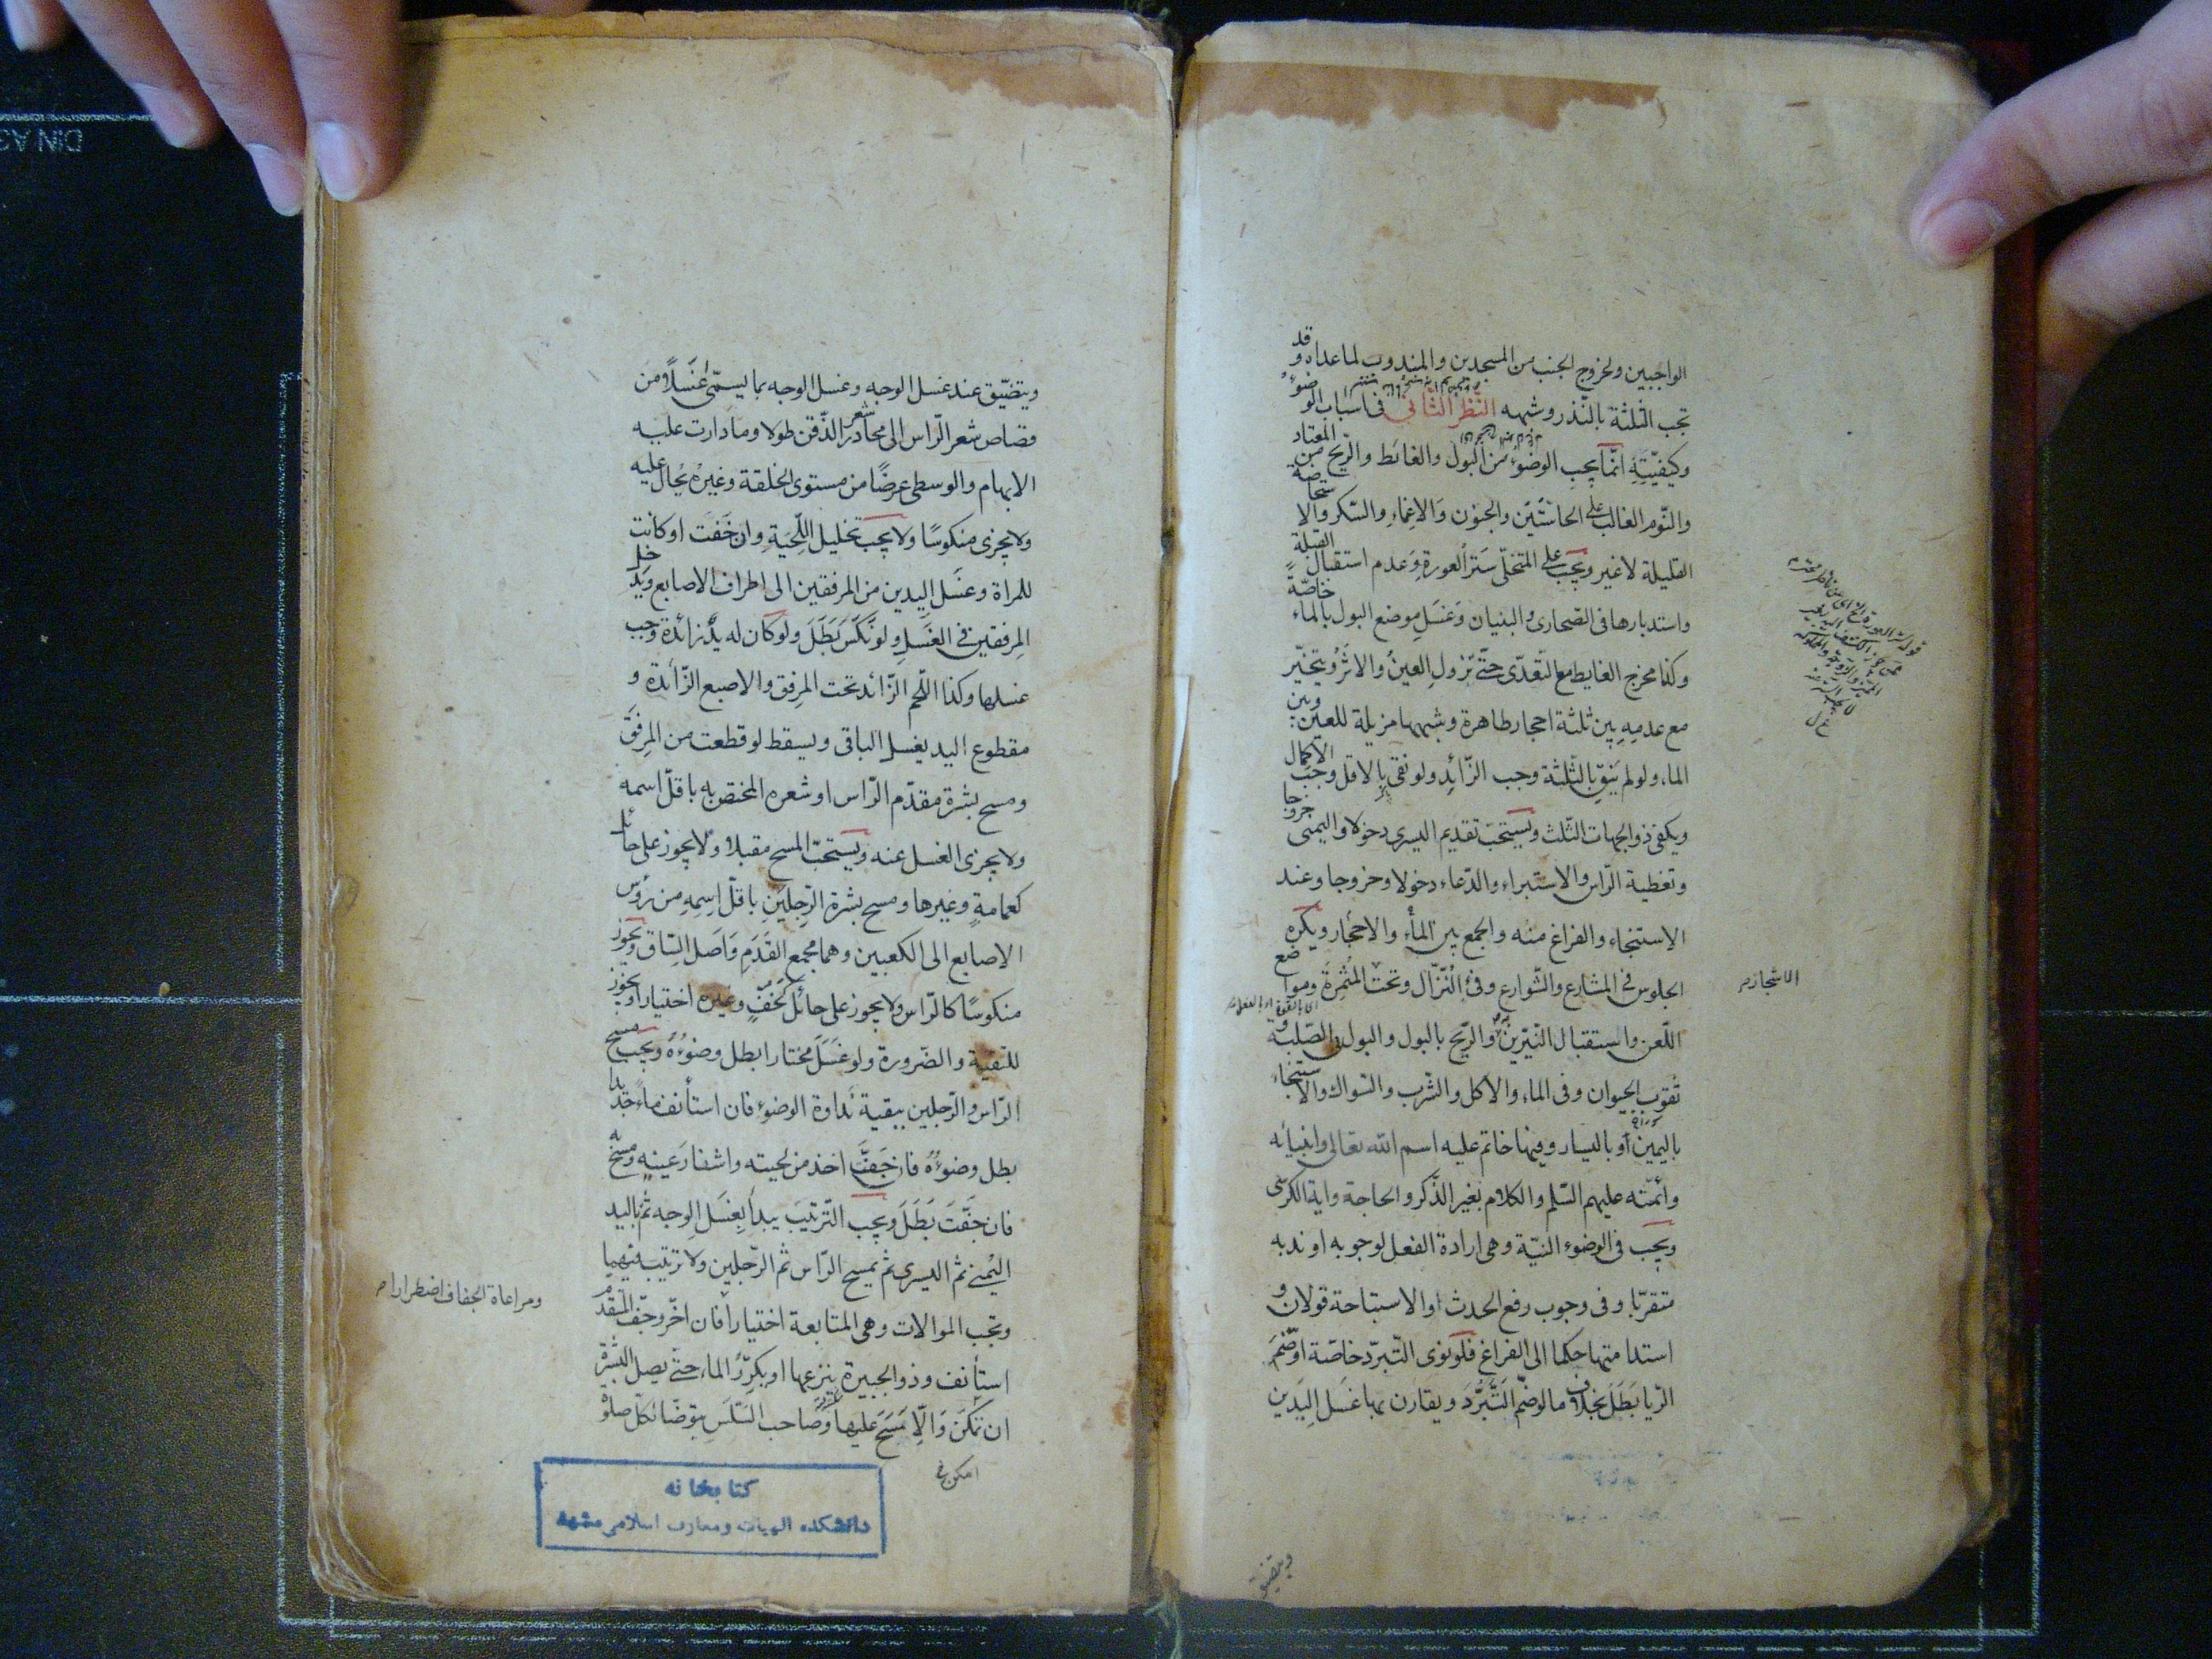 الواجبين ولخروج الجنب من المسجدين والمندوب لما عداه وقد
تجب الثلثة بالنذر وشبهه النظر الثاني في اسباب الوضوء
وكيفيّته انما يجب الوضوء من البول والغائط والريح من المعتاد
والنوم الغالب على الحاستين والجنون والاغماء والسكر والاستحاضة
القليلة لا غير ويجب على المتخلى ستر العورة وعدم استقبال القبلة
واستدبارها في الصحارى والبنيان وغسل موضع البول بالماء خاصّة
وكذا مخرج الغايط مع التعدى حتى تزول العين والاثر ويتخيّر
مع عدمه بين ثلثة احجار طاهرة وشبهها مزيلة للعين وبين
الماء ولو لم ينق بالثلثة وجب الزائد ولو نقى بالاقل وجب الاكمال
ويكفى ذو الجهات الثلث ويستحب تقديم اليسرى دخولا واليمنى خروجا
وتغطية الراس والاستبراء والدعاء دخولا وخروجا وعند
الاستنجاء والفراغ منه والجمع بين الماء والاحجار ويكره
الجلوس في المشارع والشوارع وفئ النزّال وتحت المثمرة ومواضع
اللعن واستقبال النيّرين والريح بالبول والبول في الصّلبة و
ثقوب الحيوان وفى الماء والاكل والشرب والسواك والاستنجاء
باليمين او باليسار وفيها خاتم عليه اسم الله تعالى وانبيائه
وأئمّته عليهم السلم والكلام بغير الذكر والحاجة واية الكرسى
ويجب في الوضوء النيّة وهى ارادة الفعل لوجوبه او ندبه
متقربا وفى وجوب رفع الحدث او الاستباحة قولان و
استدامتها حكما الى الفراغ فلو نوى التبرّد خاصّة او ضمّ
الريا بطل بخلاف ما لو ضم التبرّد ويقارن بها غسل اليدين
ويتضيق
ويتضيّق عند غسل الوجه وغسل الوجه بما يسمّى غسلا من
قصاص شعر الراس الى محادر شعر الذقن طولا وما دارت عليه
الابهام والوسطى عرضًا من مستوى الخلقة وغيره يحال عليه
ولا يجزى منكوسًا ولا يجب تخليل اللحية وان خفت او كانت
للمراة وغسل اليدين من المرفقين الى اطراف الاصابع ويدخل
المرفقين في الغسل ولو نكس بطل ولو كان له يد زائدة وجب
غسلها وكذا اللحم الزائد تحت المرفق والاصبع الزائدة و
مقطوع اليد يغسل الباقى ويسقط لو قطعت من المرفق
ومسح بشرة مقدّم الراس او شعره المختص به باقلّ اسمه
ولا يجزى الغسل عنه ويستحبّ المسح مقبلا ولا يجوز على حائل
كعمامة وغيرها ومسح بشرة الرجلين باقلّ اسمه من رؤس
الاصابع الى الكعبين وهما مجمع القدم واصل الساق ويجوز
منكوسًا كالراس ولا يجوز على حائل كخفّ وغيره اختيارا ويجوز
للتقية والضرورة ولو غسل مختارا بطل وضوءه ويجب مسح
الراس والرجلين ببقية نداوة الوضوء فان استأنف ماءً جديدا
بطل وضوءه فان جفّ اخذ من لحيته واشفار عينيه ومسح به
فان جفّت بطل ويجب الترتيب يبدأ بغسل الوجه ثم باليد
اليمنى ثم اليسرى ثم يمسح الراس ثم الرجلين ولا ترتيب فيهما
وتجب الموالات وهى المتابعة اختيارا فان اخّر وجفّ المتقدم
استأنف وذو الجبيرة ينزعها او يكرّر الماء حتى يصل البشرة
ان تمكن والّا مسح عليها وصاحب السلس يتوضّا لكلّ صلوة
ومراعاة الجفاف اضطرارا
امكن
كتابخانه
دانشكده الهيات ومعارف اسلامى مشهد